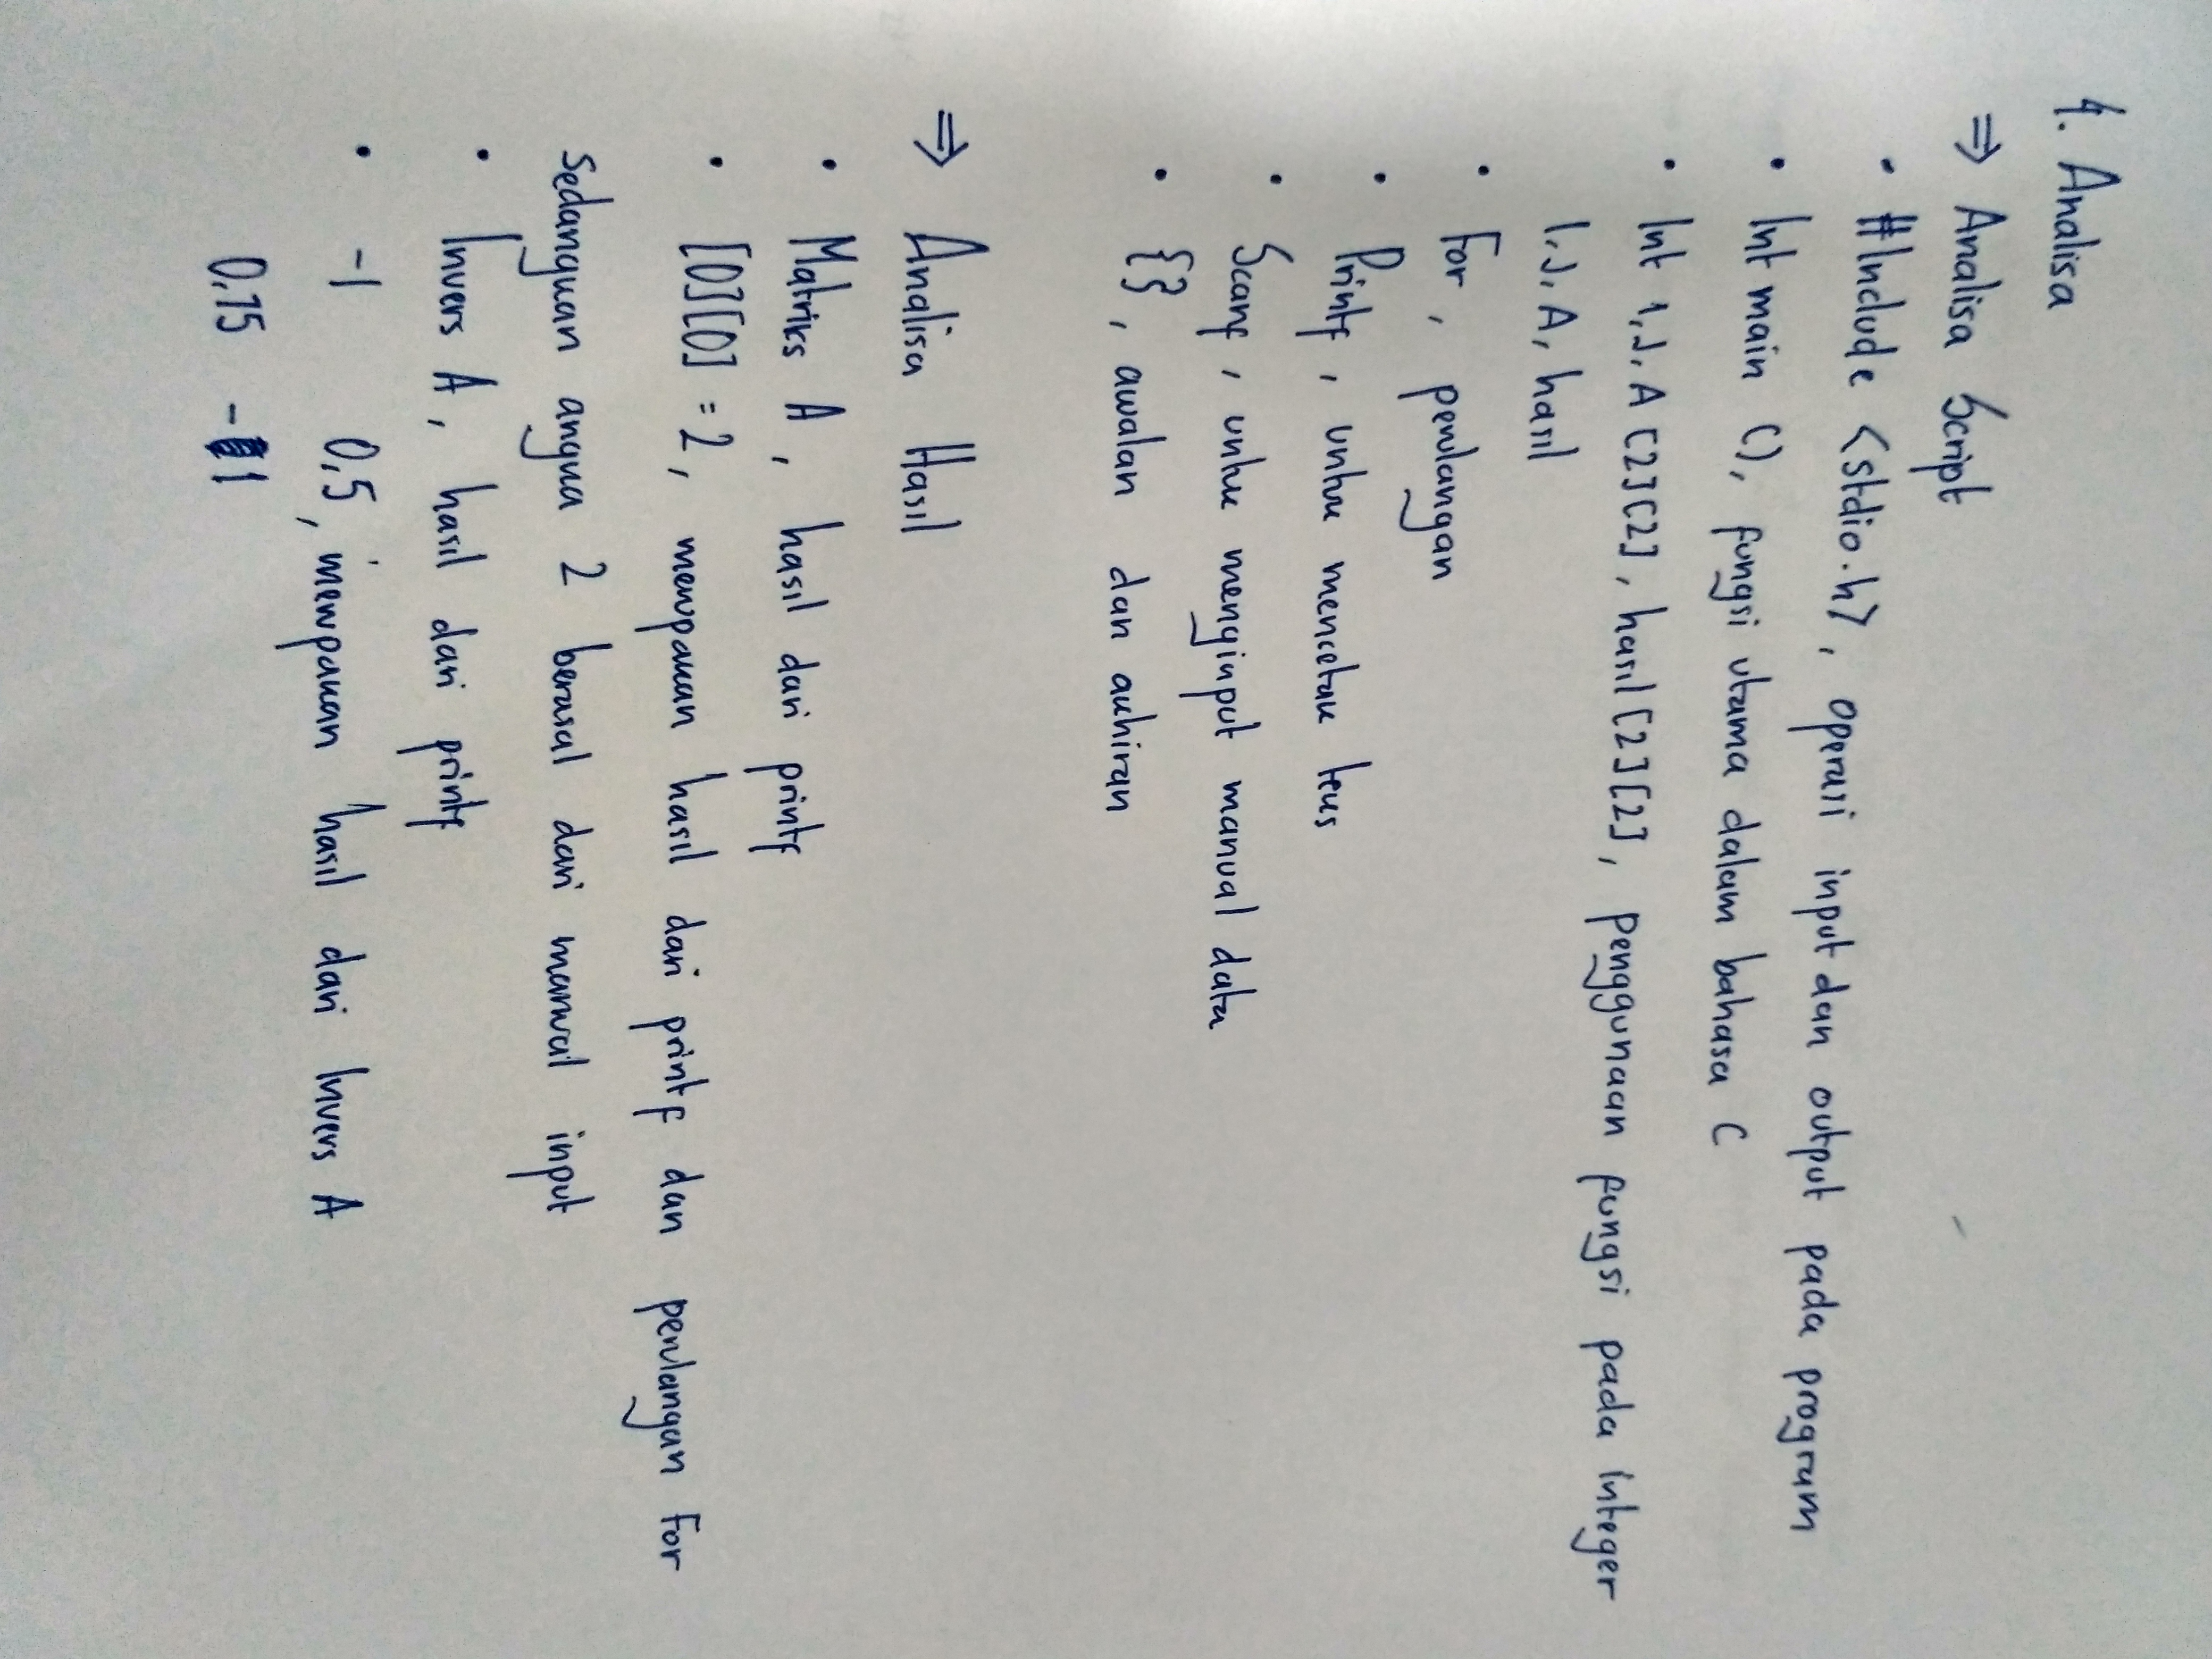 4. Analisa
⇒ Analisa Script
• #Include <stdio.h>, operasi input dan output pada program
• Int main (), fungsi utama dalam bahasa C
• Int i, J, A [2][2], hasil [2][2], penggunaan fungsi pada Integer
I, J, A, hasil
• For, perulangan
• Printf, untuk mencetak teks
• Scanf, untuk menginput manual data
• {}, awalan dan akhiran
⇒ Analisa Hasil
• Matriks A, hasil dari printf
• [0][0] = 2, merupakan hasil dari printf dan perulangan For
sedangkan angka 2 berasal dari manual input
• Invers A, hasil dari printf
• -1 0,5, merupakan hasil dari Invers A
0,75 -1